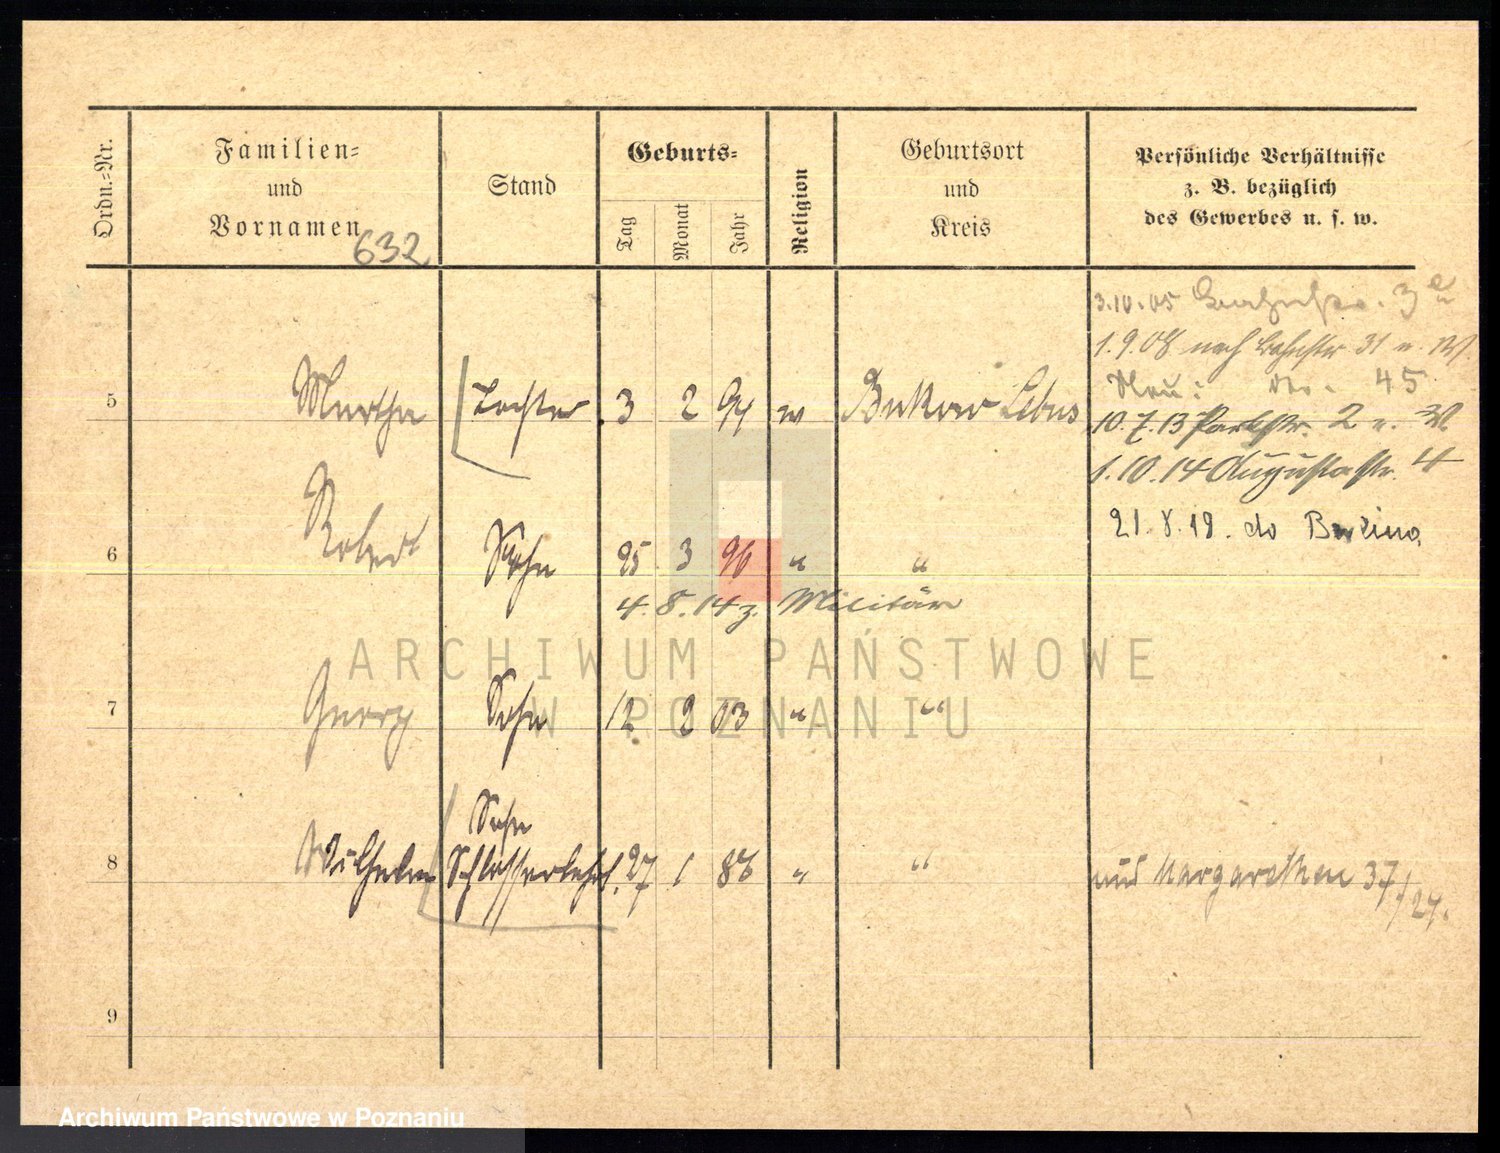 Ordn.-Nr.
Familien-
und
Vornamen
632
Stand
Geburts-
Tag
Monat
Jahr
Religion
Geburtsort
und
Kreis
Persönliche Verhältnisse
z. B. bezüglich
des Gewerbes u. s. w.
3.10.05 3
1.9.08 nach Bahnstr 31 u. W.
Neu: 45
5 Martha Tochter 3 2 94 Bukow Lebus
10.7.13 Parkstr. 2 u. W.
1.10.14 Augustastr. 4
21.8.19. do
6 Robert Sohn 25 3 96 " "
4.8.14 z. Militär
7 Georg Sohn 12 2 03 " "
Sohn
8 Wilhelm Schlosserlehrl. 27 1 88 " " Margarethen 37/
ARCHIWUM PAŃSTWOWE
W POZNANIU
9
Archiwum Państwowe w Poznaniu